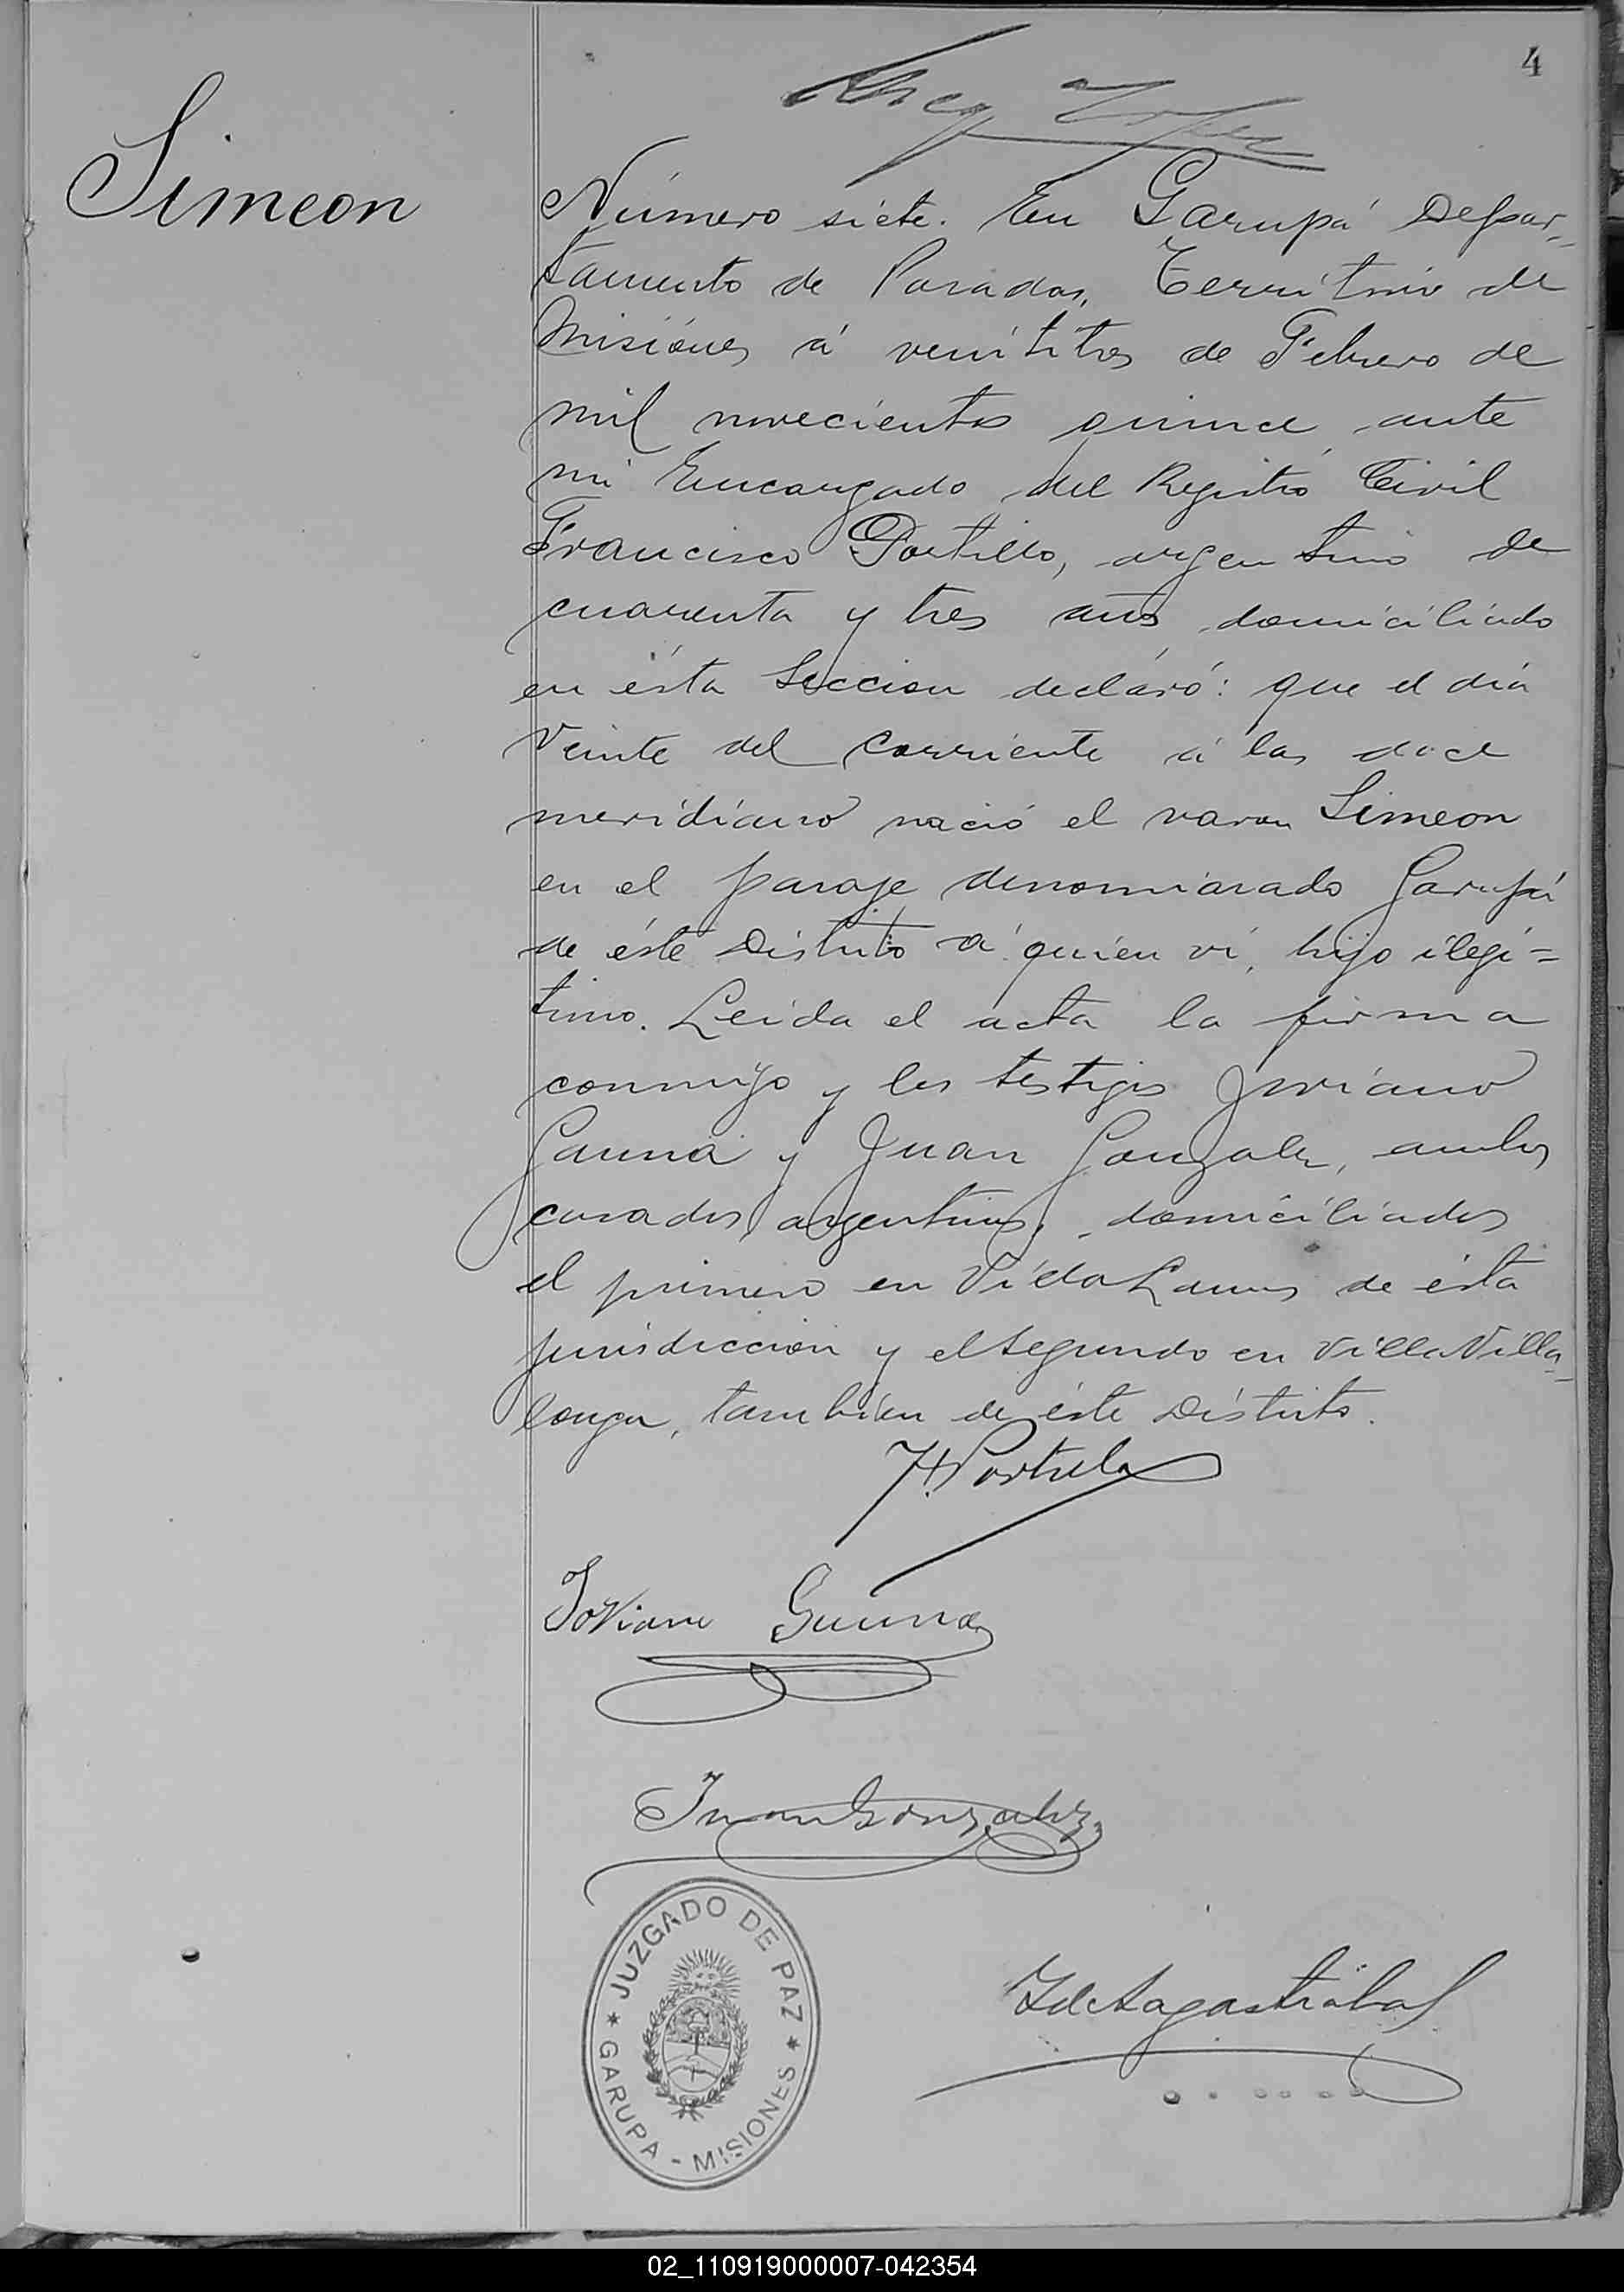 4
Simeon
Número siete. En Garupá Depar-
tamento de Posadas, Territorio de
Misiónes á veintitres de Febrero de
mil novecientos quince, ante
mi Encargado del Registro Civil
Francisco Portillo, argentino de
cuarenta y tres años domiciliado
en ésta Seccion declaró: que el día
Veinte del corriente á las doce
meridiano nació el varon Simeon
en el paraje denominado Garupá
de éste Distrito á quien ví, hijo ilegí=
timo. Leida el acta la firma
conmigo y los testigos Joviano
Gauna y Juan Gonzalez, ambos
casados, argentinos, domiciliados
el primero en Villa Lanus de ésta
jurisdiccion y el segundo en Villa Villa=
longa, tambien de éste Distrito.
F. Portillo
Joviano Gauna
Juan Gonzalez
JUZGADO DE PAZ
GARUPA - MISIONES
02_110919000007-042354